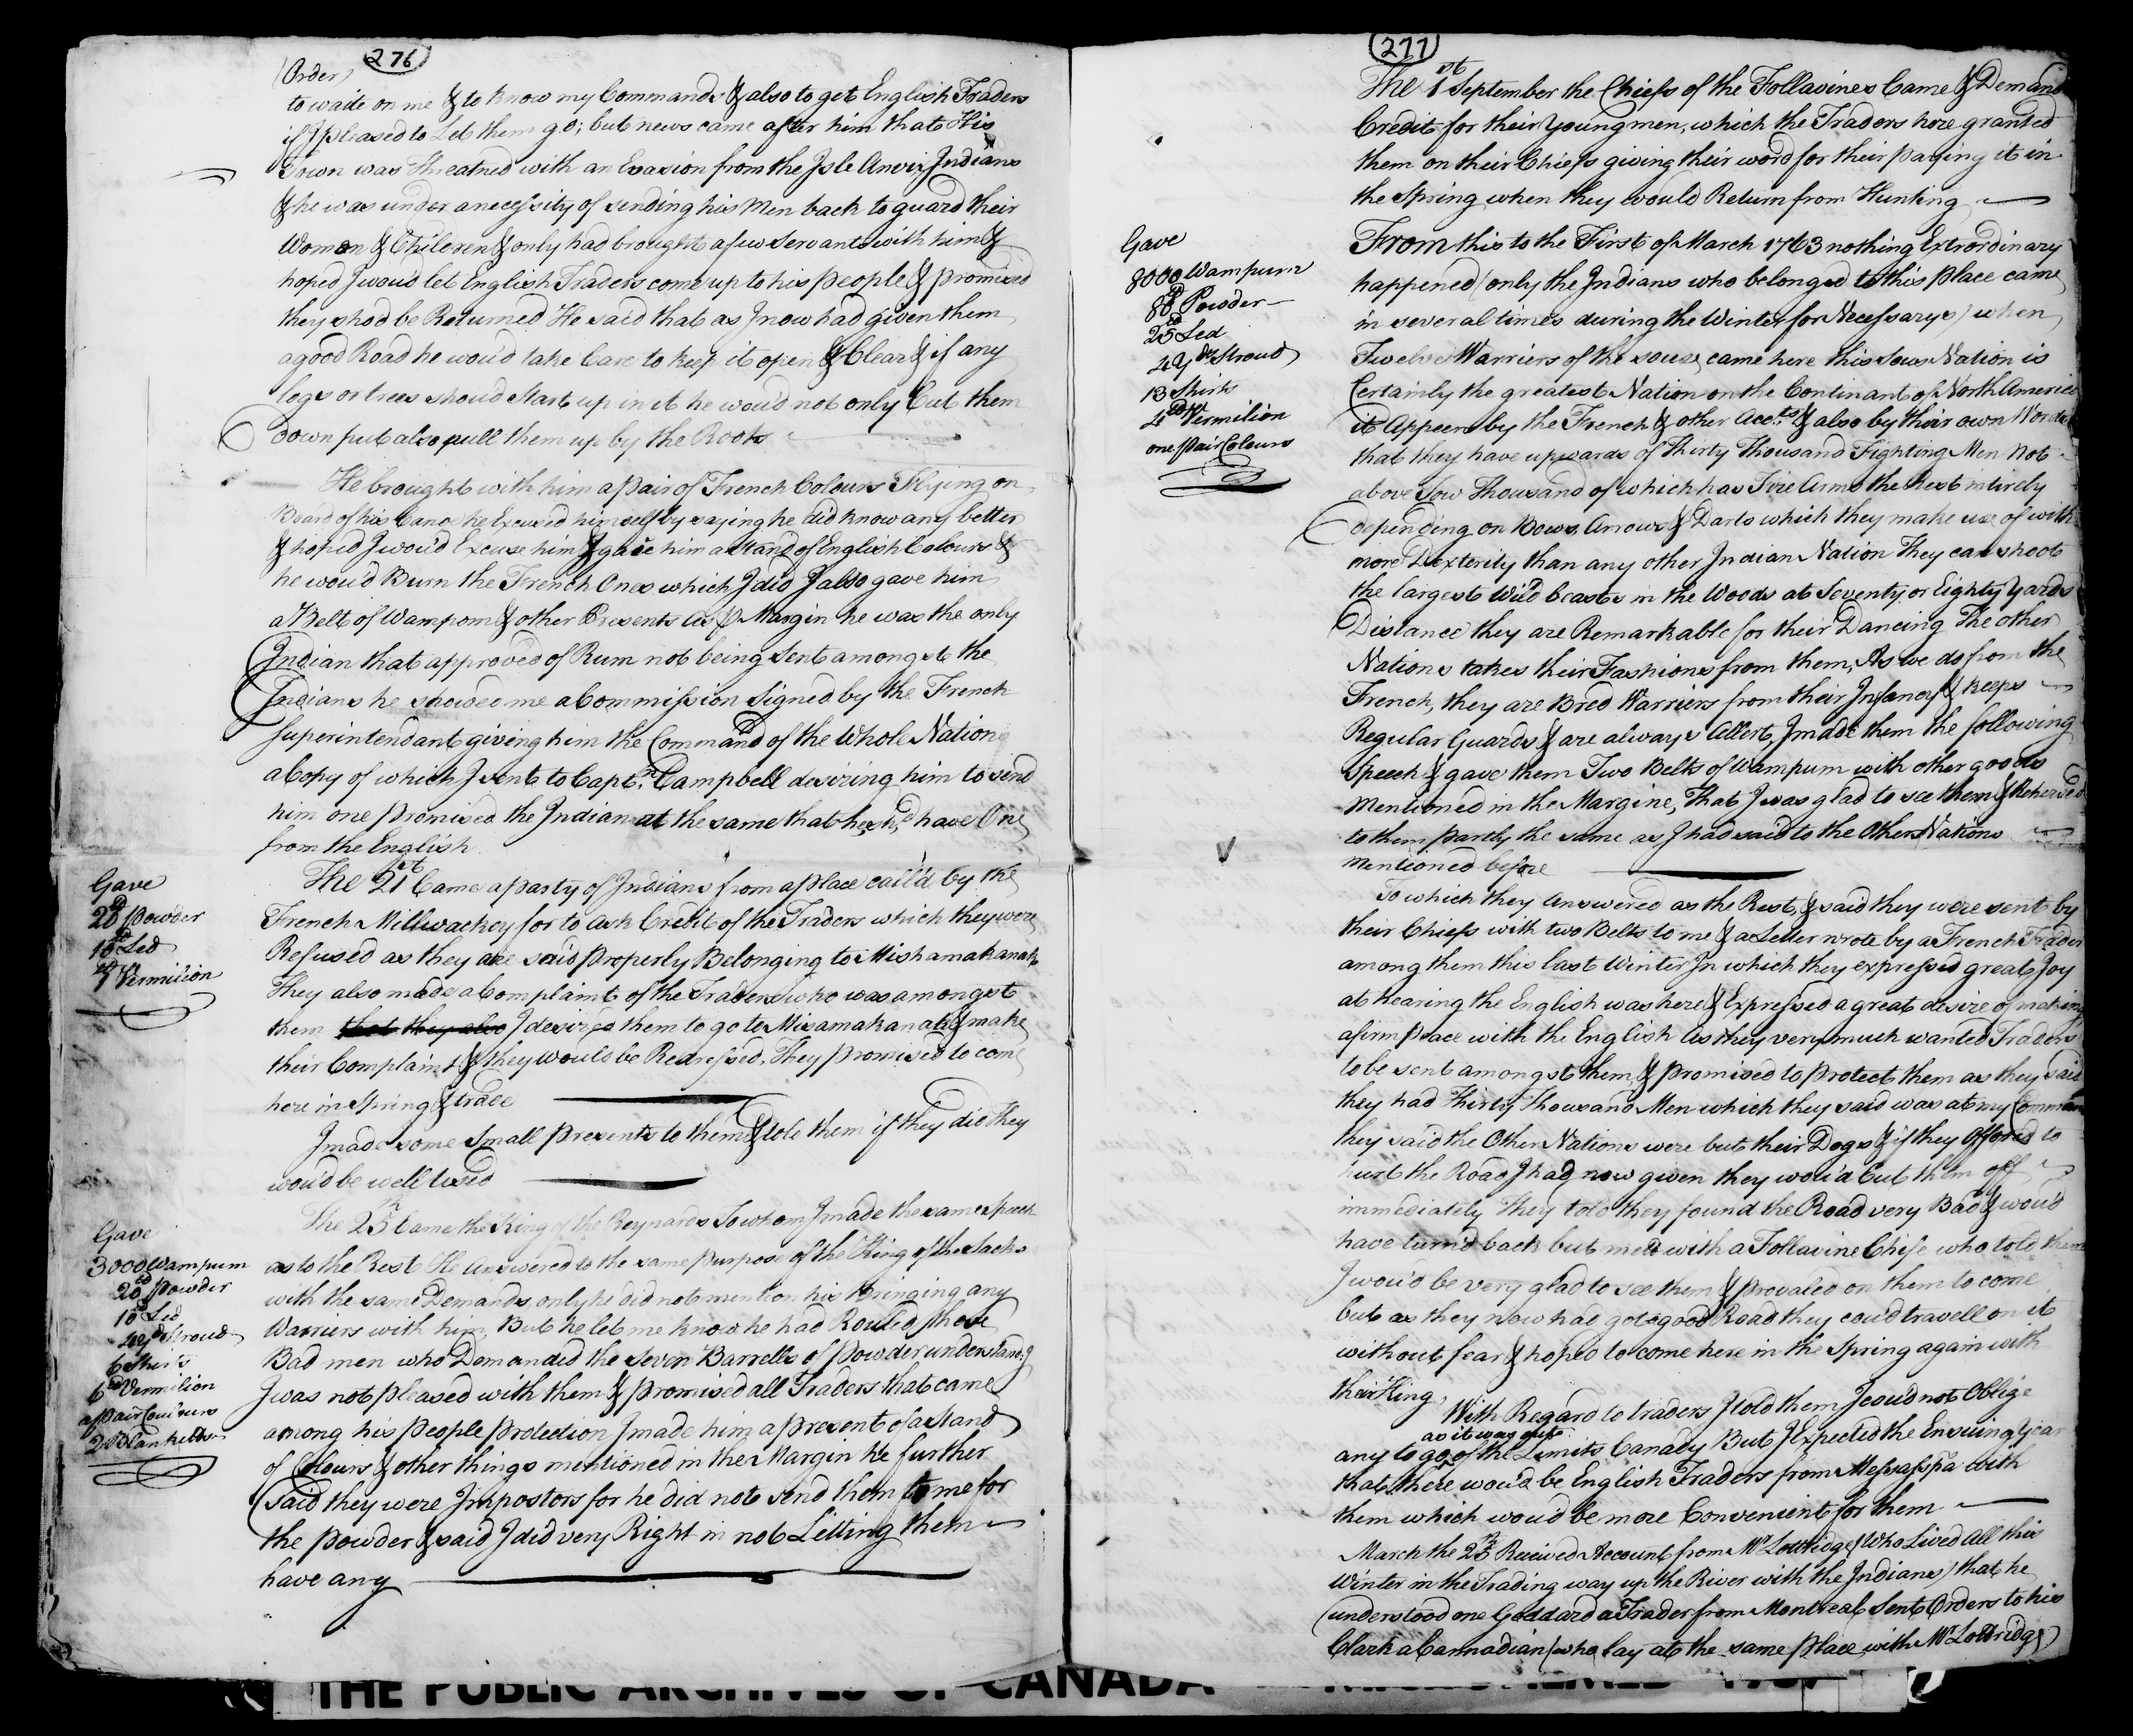 276
(Order)
to waite on me & to know my Commands & also to get English Traders
if I pleased to Let them go; but news came after him that His
Town was threatned with an Evasion from the Isle Anoix Indians
& he was under a necessity of sending his Men back to guard their
Women & Children & only had brought a few Servants with him &
hoped I woud let English Traders come up to his people & promised
they shod be Returned He said that as I now had given them
a good Road he woud take Care to keep it open & Clear & if any
logs or trees shoud Start up in it he woud not only Cut them
down put also pull them up by the Roots
He brought with him a pair of French Colours Flying on
Board of his Canoe he Excused himself by saying he did know any better
& hoped I woud Excuse him & gave him a Stand of English Colours &
he woud Burn the French Ones which I did I also gave him
a Belt of Wampom & other Presents as P Margin he was the only
Indian that approved of Rum not being sent amongst the
Indians he showed me a Commission Signed by the French
Superintendant giving him the Command of the Whole Nation
a Copy of which I sent to Capt.n Campbell desiring him to send
him one promised the Indian at the same that he sh.d have One
from the English
The 21st Came a party of Indians from a place call'd by the
French Millwackey for to ask Credit of the Traders which they were
Refused as they are said properly Belonging to Mishamakanak
They also made a Complaint of the Traders who was amongst
them that they also I desired them to go to Misamakanak & make
their Complaint & they would be Redressed. They promised to come
here in Spring & trade
I made some Small presents to them & told them if they did they
woud be well used
The 25th Came the King of the Reynards To whom I made the same speech
as to the Rest He Answered to the same purpose of the King of the Sacks
with the same Demands only he did not mention his Bringing any
Warriers with him, But he let me know he had Routed those
Bad men who Demanded the seven Barrells of Powder understand.g
I was not pleased with them & promised all Traders that came
among his people protection I made him a present of a Stand
of Colours & other things mentioned in the Margin he further
Said they were Impostors for he did not send them to me for
the powder & said I did very Right in not Letting them
have any
Gave
20 lb powder
10 lb Led
1 lb Vermilion
Gave
3000 Wampum
20 lb powder
10 lb Led
4 yds Stroud
6 Shirts
6 lb Vermilion
a pair Coulours
2 Blanketts
277
The 1st September the Chiefs of the Follavines Came & Demand
Credit for their Young men, which the Traders here granted
them on their Chiefs giving their word for their paying it in
the Spring when they would Return from Hunting
From this to the First of March 1763 nothing Extrordinary
happened (only the Indians who belonged to this place came
in several times during the Winter for Necessarys) when
Twelve Warriers of the souse, came here this Sows Nation is
Certainly the greatest Nation on the Continant of North America
it Appeers by the French & other Acc.ts & also by their own Words
that they have upwards of Thirty Thousand Fighting Men Not
above Tow Thousand of which has Fire Arms the Rest intirely
depending on Bows Arrows & Darts which they make use of with
more Dexterity than any other Indian Nation They can shoot
the largest Wild beasts in the Woods at Seventy or Eighty Yards
Distance they are Remarkable for their Dancing The other
Nations takes their Fashions from them, As we do from the
French, they are Bred Warriers from their Infancy & keeps
Regular Guards & are always Allert, I made them the following
Speech & gave them Two Belts of Wampum with other goods
mentioned in the Margine, That I was glad to see them & Rehersed
to them partly the same as I had said to the Other Nations
mentioned before
To which they Answered as the Rest, & said they were sent by
their Chiefs with two Belts to me & a Letter wrote by a French Trader
among them this last Winter In which they expressed great Joy
at hearing the English was here & Expressed a great desire of making
a firm peace with the English as they very much wanted Traders
to be sent amongst them, & promised to protect them as they said
they had Thirty Thousand Men which they said was at my Comman
they said the Other Nations were but their Dogs & if they Offered to
hurt the Road I had now given they wou'd Cut them off
immediately They told they found the Road very Bad & wou'd
have turn'd back but met with a Follavine Chife who told them
I wou'd be very glad to see them & prevaled on them to come
but as they now had got a good Road they cou'd travell on it
without fear & hoped to come here in the Spring again with
their King.
With Regard to traders I told them I cou'd not Oblige
as it was out
any to go of the Limits Canady But I Expected the Ensuing Year
that there wou'd be English Traders from Messasspa with
them which would be more Convenient for them
March the 25th Received Account from Mr Lottridge (Who Lived All this
Winter in the Trading way up the River with the Indians) that he
understood one Goddard a Trader from Montreal Sent Orders to his
Clark a Cannadian (who lay at the same place with Mr Lottridge)
Gave
8000 Wampum
80 lb Powder
25 lb Led
4 Yds Stroud
13 Shirts
Vermilion
one pair Colours
THE PUBLIC ARCHIVES OF CANADA